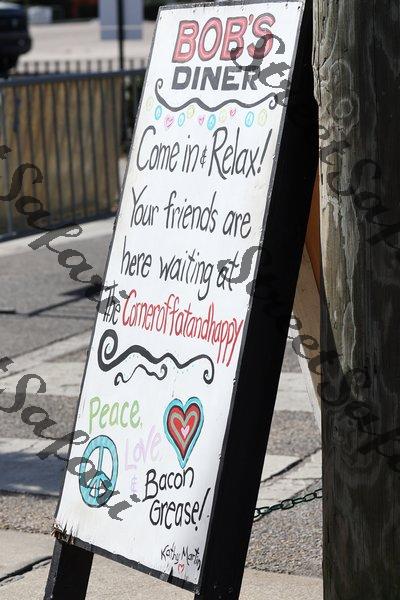 BOB'S
DINER
Come in & Relax!
Your friends are
here waiting at
The Corneroffatandhappy
Peace,
Love
&
Bacon
Grease!
Kathy Martin
Street Sapari
Street Sapari
Street Sapari
Street Sapari